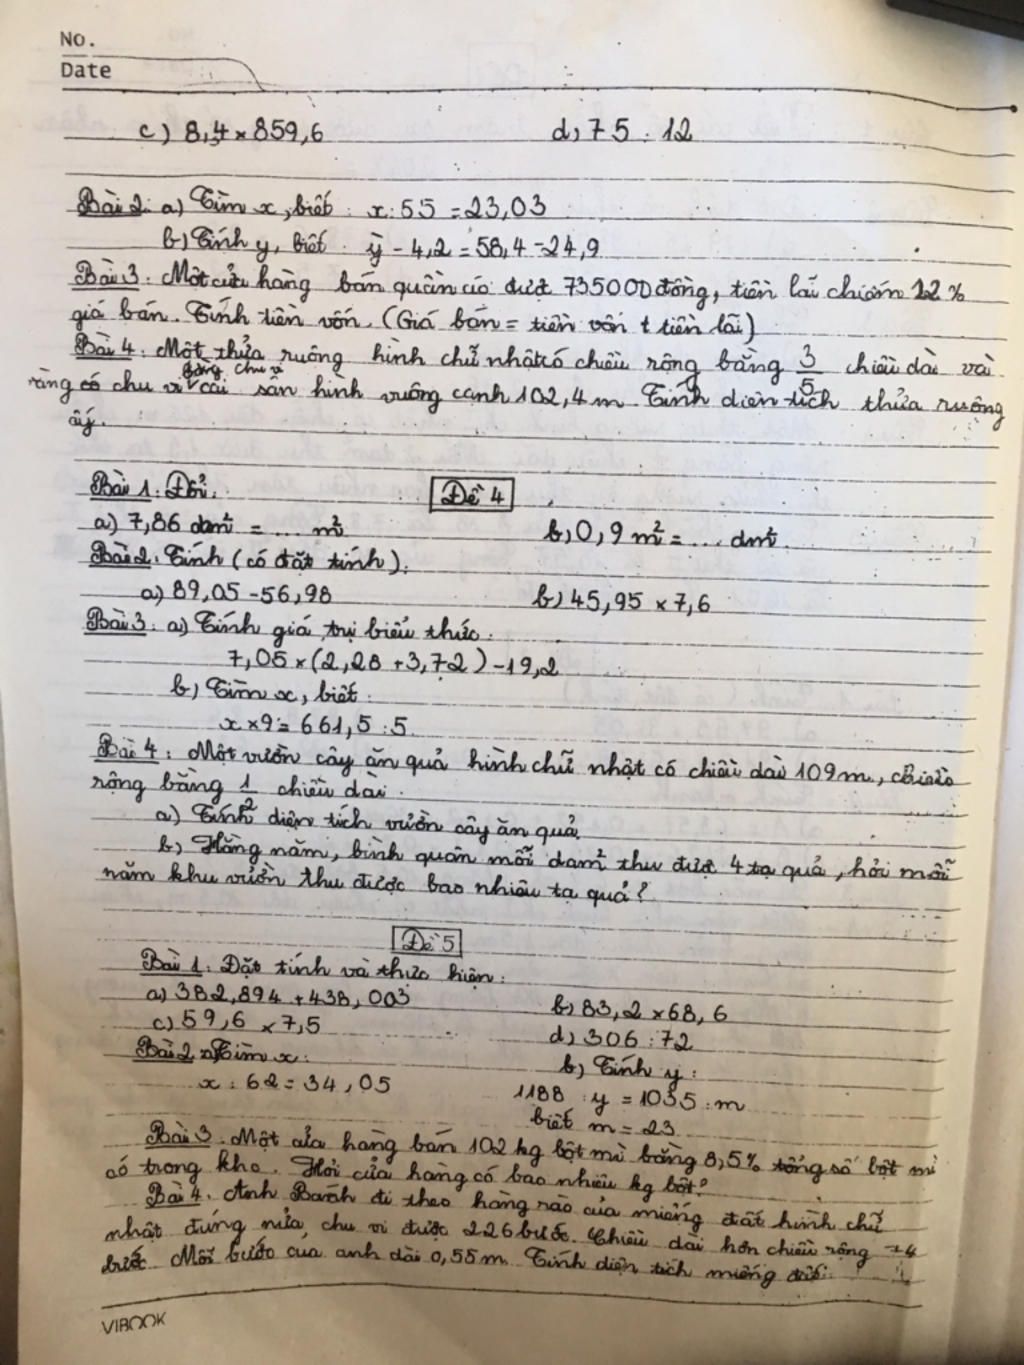 No.
Date
c) 8,4 x 859,6 d, 75 : 12
Bài 2: a) Tìm x, biết : x : 55 = 23,03
b) Tính y, biết : y - 4,2 = 58,4 - 24,9
Bài 3 : Một cửa hàng bán quần áo được 735000 đồng, tiền lãi chiếm 12 %
giá bán. Tính tiền vốn. (Giá bán = tiền vốn + tiền lãi)
Bài 4 : Một thửa ruộng hình chữ nhật có chiều rộng bằng 3/5 chiều dài và
bằng chu vi
rằng có chu vi cái sân hình vuông cạnh 102,4 m. Tính diện tích thửa ruộng
ấy.
Bài 1 : Đổi. Đề 4
a) 7,86 dam² = ... m² b, 0,9 m² = ... dm².
Bài 2 : Tính (có đặt tính).
a) 89,05 - 56,98 b, 45,95 x 7,6
Bài 3 : a) Tính giá trị biểu thức :
7,05 x (2,28 + 3,72) - 19,2
b, Tìm x, biết :
x x 9 = 661,5 : 5.
Bài 4 : Một vườn cây ăn quả hình chữ nhật có chiều dài 109 m, chiều
rộng bằng 1/2 chiều dài.
a) Tính diện tích vườn cây ăn quả.
b, Hằng năm, bình quân mỗi dam² thu được 4 tạ quả, hỏi mỗi
năm khu vườn thu được bao nhiêu tạ quả?
Đề 5
Bài 1 : Đặt tính và thực hiện :
a) 382,894 + 438,003 b, 83,2 x 68,6
c) 59,6 x 7,5 d, 306 : 72
Bài 2 a) Tìm x : b, Tính y :
x : 62 = 34,05 1188 : y = 1035 : m
biết m = 23
Bài 3. Một cửa hàng bán 102 kg bột mì bằng 8,5% tổng số bột mì
có trong kho. Hỏi cửa hàng có bao nhiêu kg bột?
Bài 4. Anh Bành đi theo hàng rào của miếng đất hình chữ
nhật đúng nửa chu vi được 226 bước. Chiều dài hơn chiều rộng 14
bước. Mỗi bước của anh dài 0,55 m. Tính diện tích miếng đất.
VIBOOK